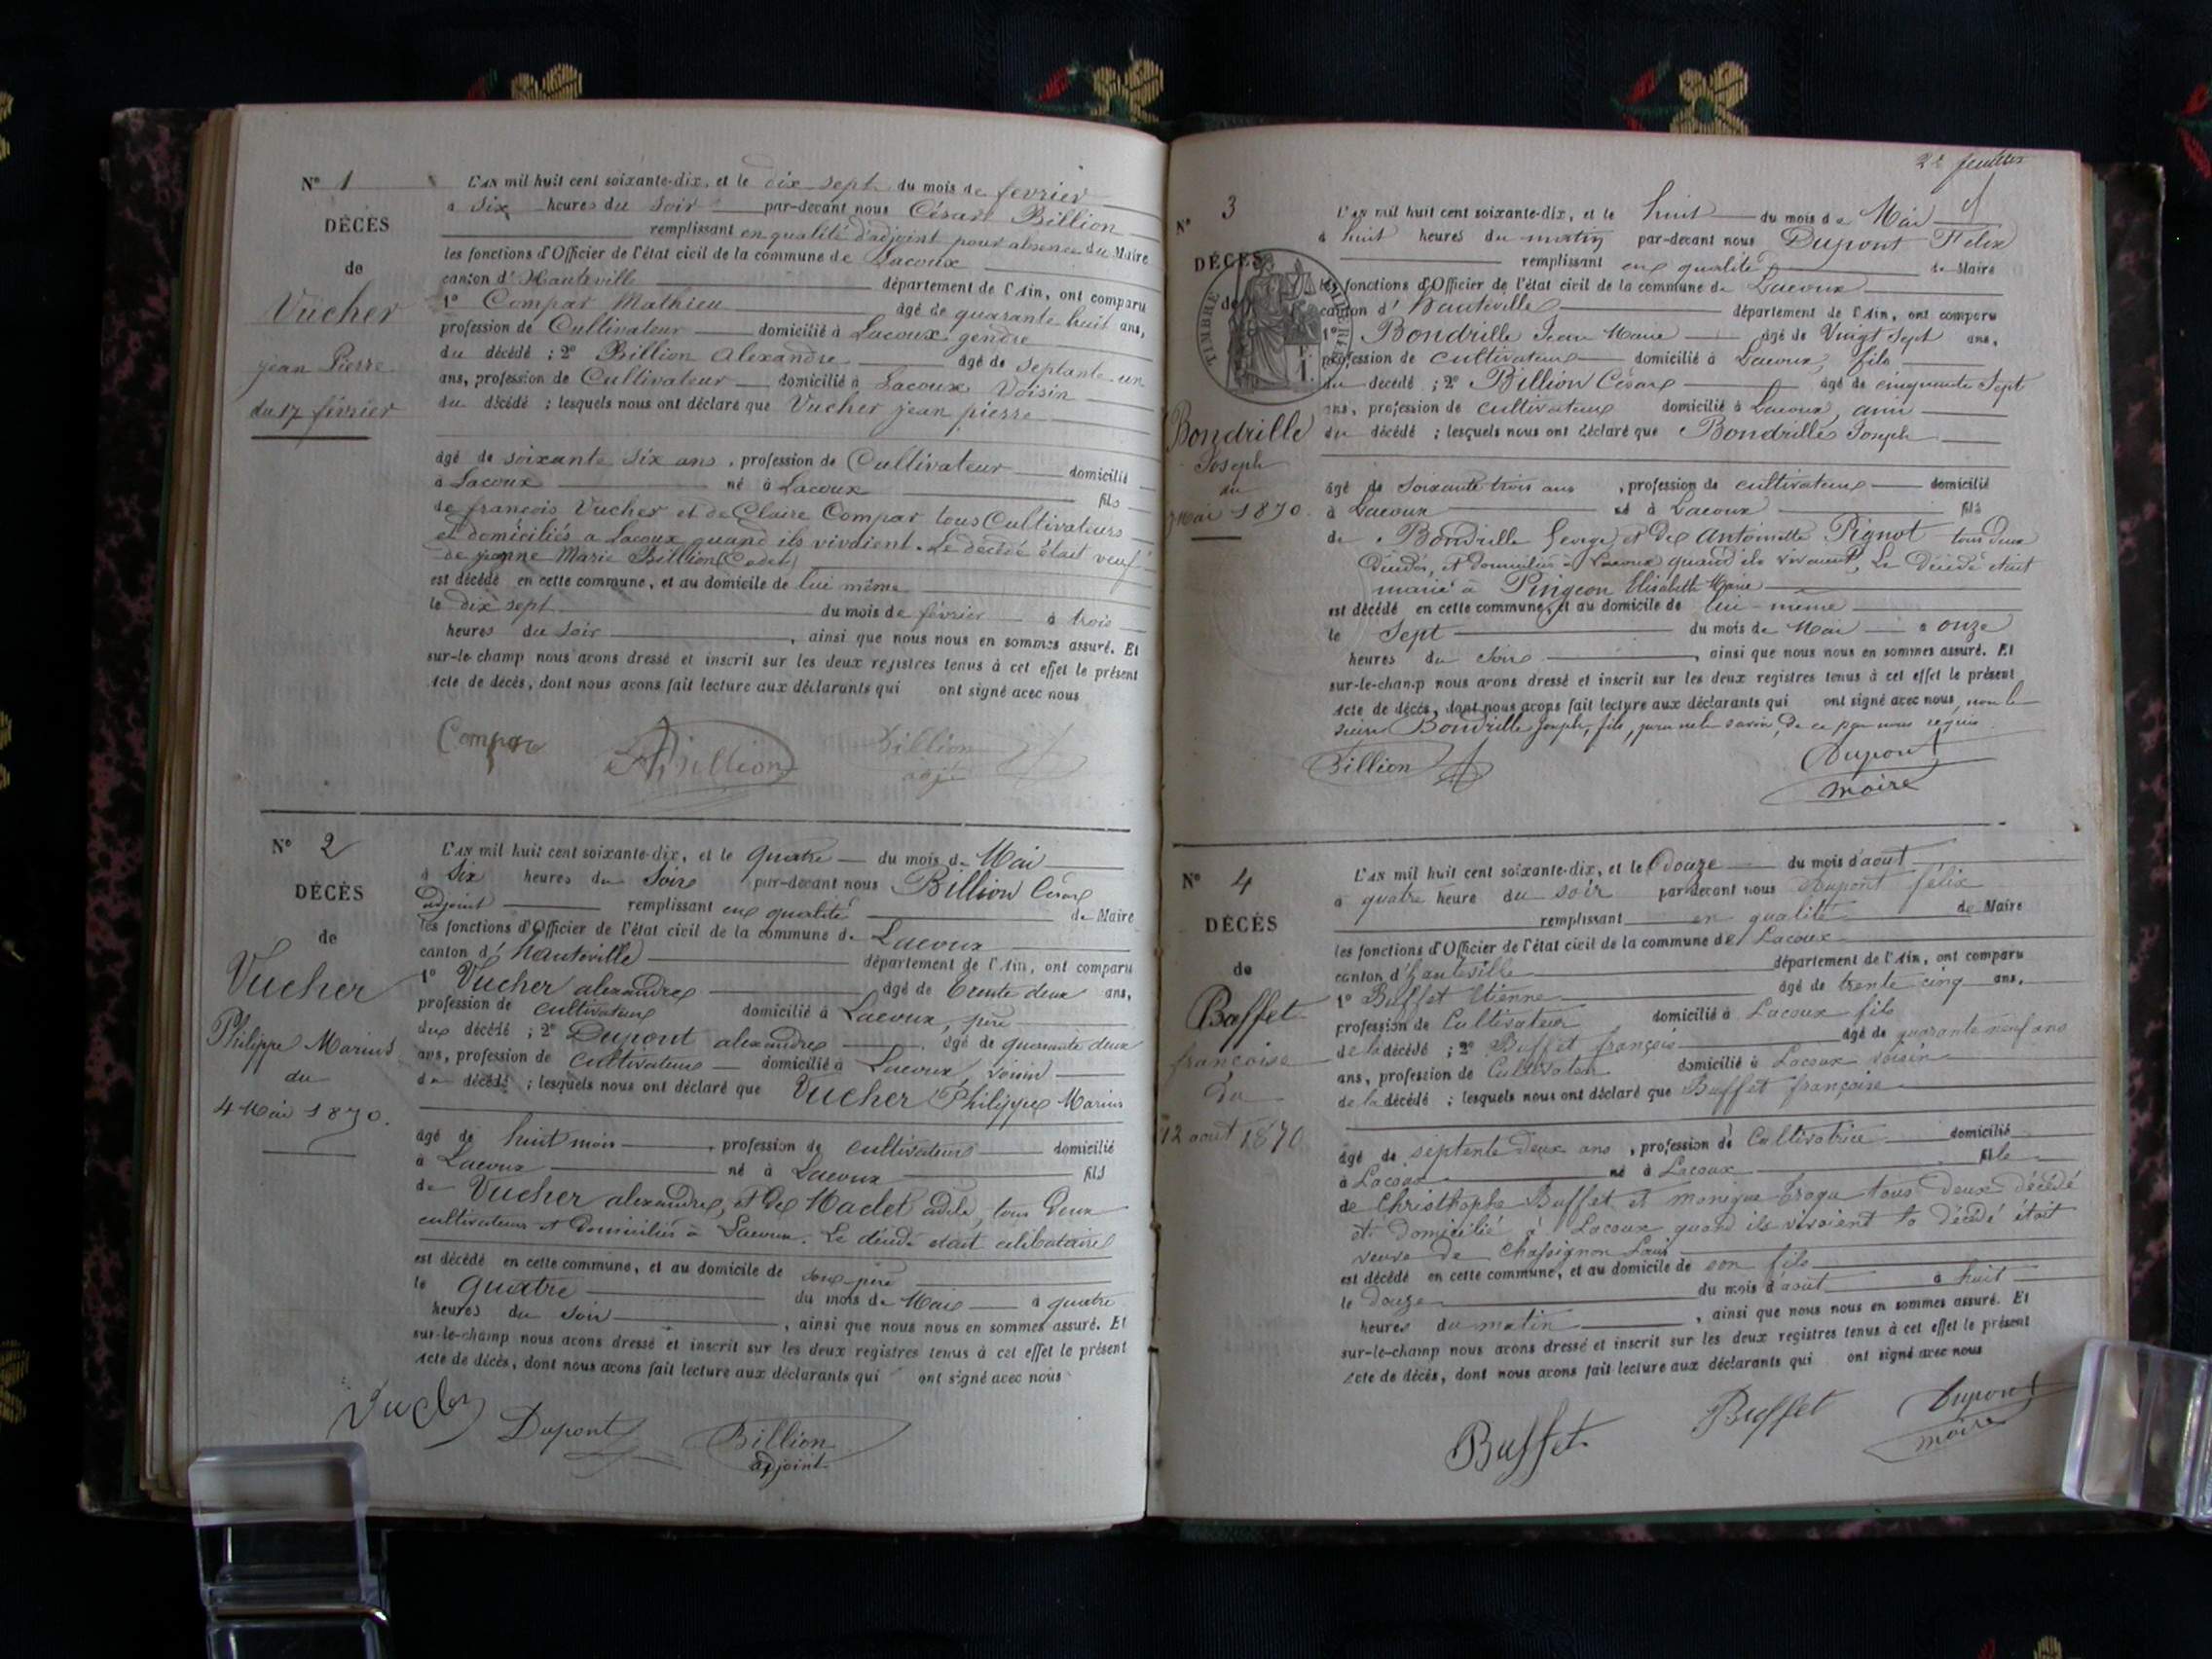 N° 1
DÉCÈS
de
Vucher
jean Pierre
du 17 février
L'AN mil huit cent soixante-dix, et le dix sept du mois de fevrier
à Six heures du Soir par-devant nous César Billion
remplissant en qualité d'adjoint pour absence du Maire
les fonctions d'Officier de l'état civil de la commune de Lacoux
canton d'Hauteville département de l'Ain, ont comparu
1° Compar Mathieu âgé de quarante huit ans,
profession de Cultivateur domicilié à Lacoux gendre
du décédé ; 2° Billion Alexandre âgé de Septante un
ans, profession de Cultivateur domicilié à Lacoux Voisin
du décédé ; lesquels nous ont déclaré que Vucher jean pierre
âgé de soixante Six ans , profession de Cultivateur domicilié
à Lacoux né à Lacoux fils
de francois Vucher et de Claire Compar tous Cultivateurs
et domiciliés a Lacoux quand ils vivaient. Le décédé était veuf
de jeanne Marie Billion (Cadet)
est décédé en cette commune, et au domicile de lui même
le dix sept du mois de février à trois
heures du Soir , ainsi que nous nous en sommes assuré. Et
sur-le-champ nous avons dressé et inscrit sur les deux registres tenus à cet effet le présent
acte de décès, dont nous avons fait lecture aux déclarants qui ont signé avec nous
Compar ABillion Billion
adj
N° 2
DÉCÈS
de
Vucher
Philippe Marius
du
4 Mai 1870.
L'AN mil huit cent soixante-dix, et le quatre du mois de Mai
à Six heures du Soir par-devant nous Billion César
adjoint remplissant en qualité de Maire
les fonctions d'Officier de l'état civil de la commune de Lacoux
canton d'hauteville département de l'Ain, ont comparu
1° Vucher alexandre âgé de trente deux ans,
profession de cultivateur domicilié à Lacoux, père
du décédé ; 2° Dupont alexandre âgé de quarante deux
ans, profession de cultivateur domicilié à Lacoux, voisin
du décédé ; lesquels nous ont déclaré que Vucher Philippe Marius
âgé de huit mois , profession de cultivateur domicilié
à Lacoux né à Lacoux fils
de Vucher alexandre, et de Maclet adèle, tous deux
cultivateurs et domiciliés à Lacoux. Le décédé était célibataire
est décédé en cette commune, et au domicile de son père
le quatre du mois de Mai à quatre
heures du soir , ainsi que nous nous en sommes assuré. Et
sur-le-champ nous avons dressé et inscrit sur les deux registres tenus à cet effet le présent
acte de décès, dont nous avons fait lecture aux déclarants qui ont signé avec nous
Dupont Billion
adjoint
N° 3
DÉCÈS
de
TIMBRE IMPÉRIAL
Bondrille
Joseph
du
7 Mai 1870.
L'AN mil huit cent soixante-dix, et le huit du mois de Mai
à huit heures du matin par-devant nous Dupont Félix
remplissant en qualité de Maire
les fonctions d'Officier de l'état civil de la commune de Lacoux
canton d'hauteville département de l'Ain, ont comparu
1° Bondrille Jean Marie âgé de Vingt Sept ans,
profession de cultivateur domicilié à Lacoux, fils
du décédé ; 2° Billion César âgé de cinquante Sept
ans, profession de cultivateur domicilié à Lacoux, ami
du décédé ; lesquels nous ont déclaré que Bondrille Joseph
âgé de Soixante trois ans , profession de cultivateur domicilié
à Lacoux né à Lacoux fils
de Bondrille George et de antoinette Pignot tous deux
décédés, et domiciliés à Lacoux quand ils vivaient, Le décédé était
marié à Pingeon Elisabeth Marie
est décédé en cette commune, et au domicile de lui-même
le Sept du mois de Mai à onze
heures du Soir , ainsi que nous nous en sommes assuré. Et
sur-le-champ nous avons dressé et inscrit sur les deux registres tenus à cet effet le présent
acte de décès, dont nous avons fait lecture aux déclarants qui ont signé avec nous, non le
sieur Bondrille Joseph, fils, pour ne le savoir, de ce par nous requis
Billion Dupont
maire
N° 4
DÉCÈS
de
Buffet
françoise
du
12 aout 1870
L'AN mil huit cent soixante-dix, et le douze du mois d'aout
à quatre heure du soir par-devant nous Dupont félix
remplissant en qualité de Maire
les fonctions d'Officier de l'état civil de la commune de Lacoux
canton d'hauteville département de l'Ain, ont comparu
1° Buffet Etienne âgé de trente cinq ans,
profession de Cultivateur domicilié à Lacoux fils
de la décédé ; 2° Buffet françois âgé de quarante neuf ans
ans, profession de Cultivateur domicilié à Lacoux voisin
de la décédé ; lesquels nous ont déclaré que Buffet françoise
âgé de septente deux ans , profession de Cultivatrice domicilié
à Lacoux né à Lacoux fille
de Christhophe Buffet et monique tous deux décédé
et domicilié à Lacoux quand ils vivaient la décédé était
veuve de Chassignon Louis
est décédé en cette commune, et au domicile de son fils
le douze du mois d'aout à huit
heures du matin , ainsi que nous nous en sommes assuré. Et
sur-le-champ nous avons dressé et inscrit sur les deux registres tenus à cet effet le présent
acte de décès, dont nous avons fait lecture aux déclarants qui ont signé avec nous
Buffet Buffet Dupont
maire